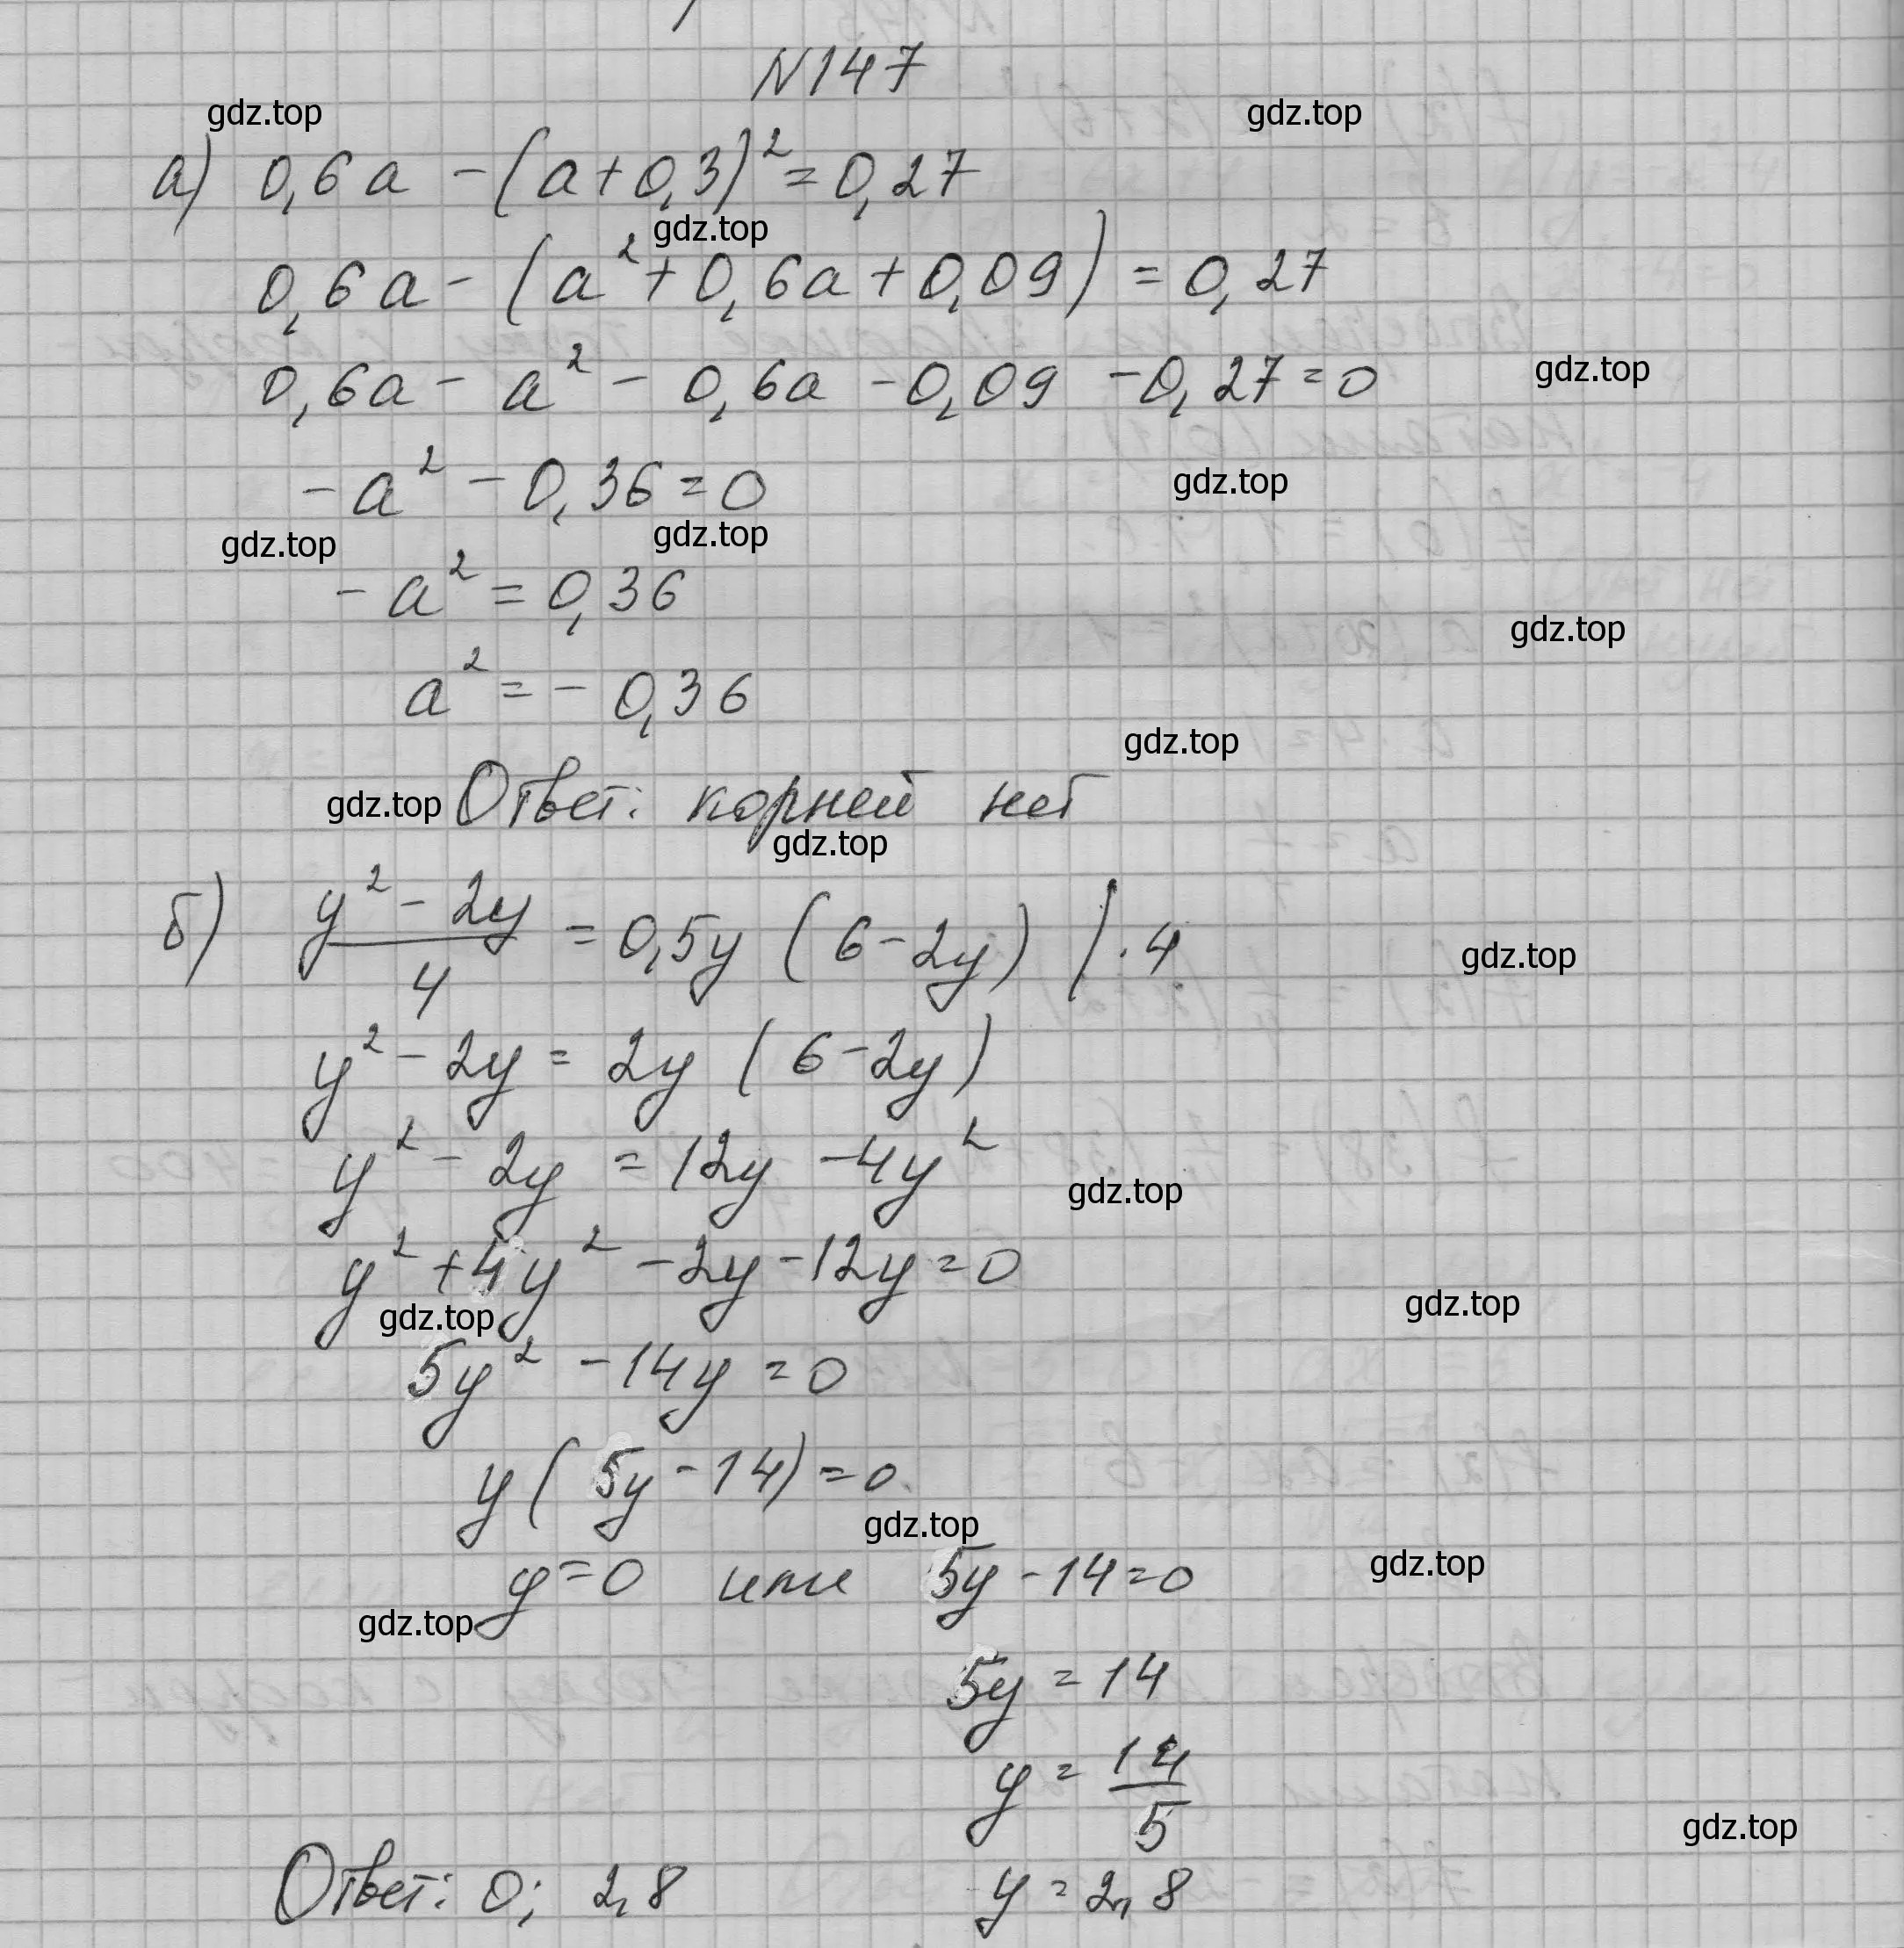 N147
gdz.top gdz.top
а) 0,6a - (a + 0,3)² = 0,27
gdz.top
0,6a - (a² + 0,6a + 0,09) = 0,27
0,6a - a² - 0,6a - 0,09 - 0,27 = 0 gdz.top
-a² - 0,36 = 0 gdz.top
gdz.top gdz.top
-a² = 0,36
gdz.top
a² = - 0,36
gdz.top
gdz.top Ответ: корней нет
gdz.top
б) (y² - 2y)/4 = 0,5y (6 - 2y) | · 4 gdz.top
y² - 2y = 2y (6 - 2y)
y² - 2y = 12y - 4y² gdz.top
y² + 4y² - 2y - 12y = 0
gdz.top gdz.top
5y² - 14y = 0
y (5y - 14) = 0
gdz.top
y = 0 или 5y - 14 = 0 gdz.top
gdz.top
5y = 14
y = 14/5
gdz.top
Ответ: 0; 2,8 y = 2,8